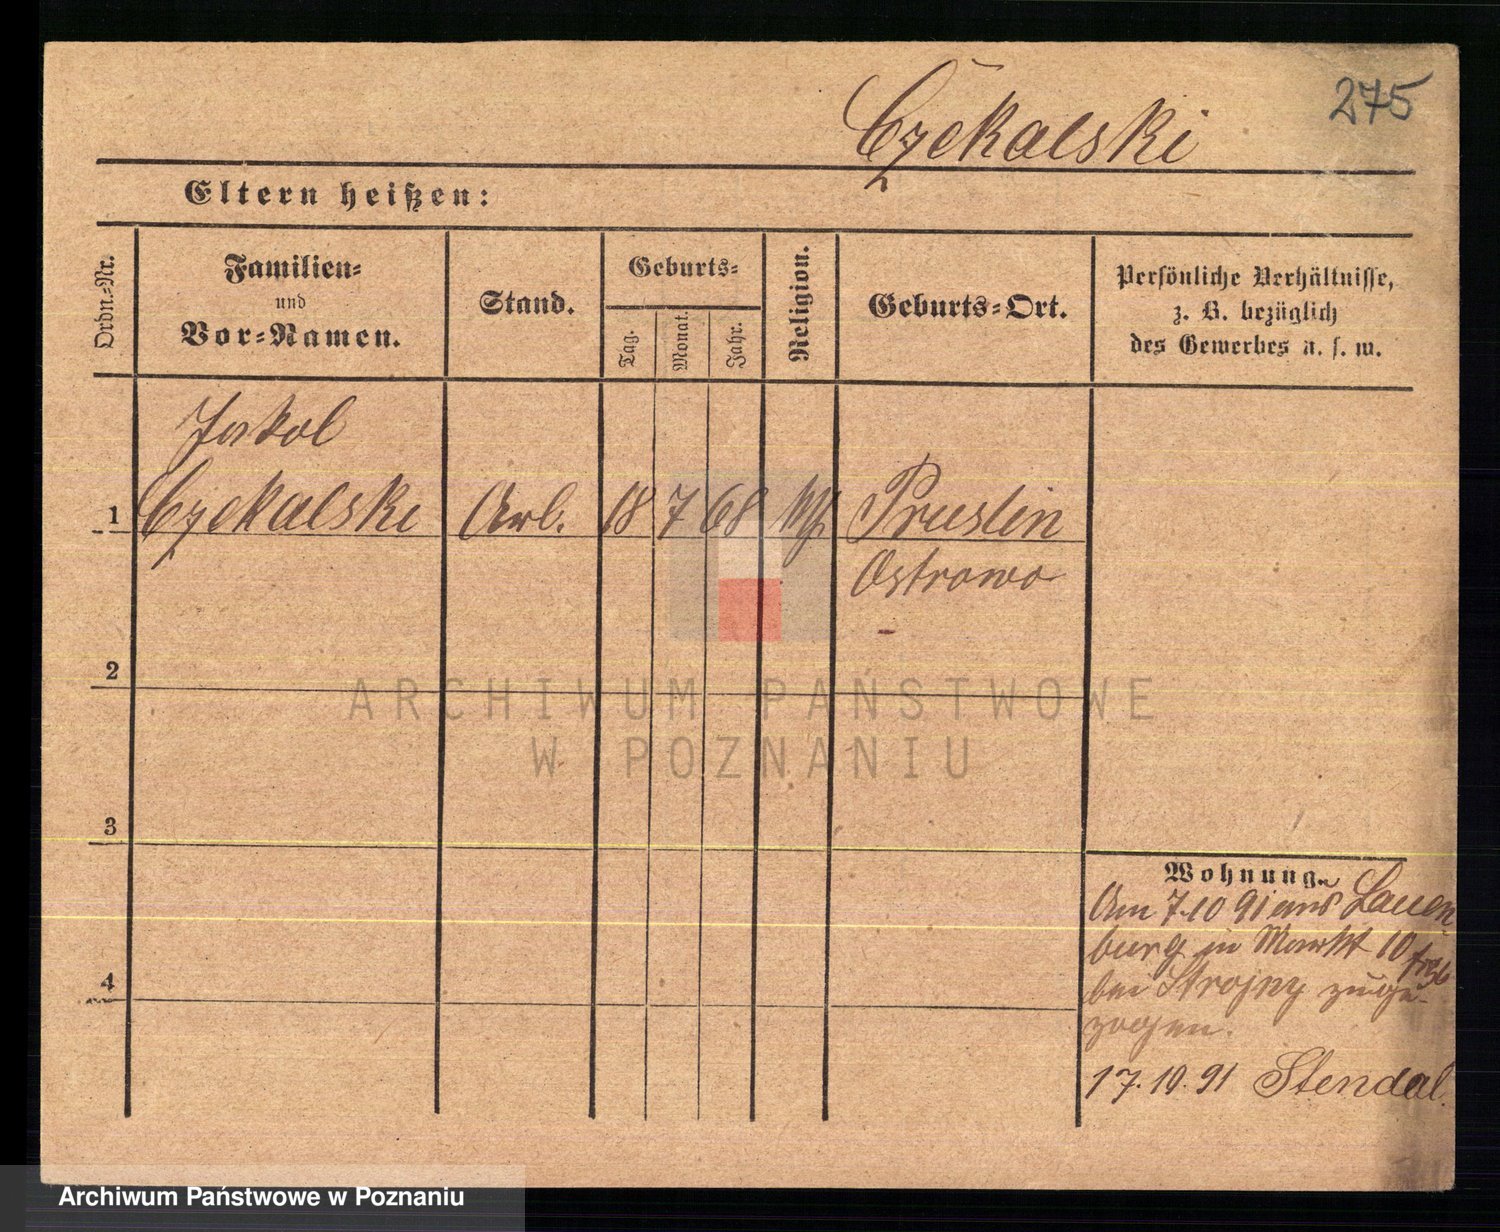 275
Czekalski
Eltern heißen:
Ordn.-Nr.
Familien-
und
Vor-Namen.
Stand.
Geburts-
Tag.
Monat.
Jahr.
Religion.
Geburts-Ort.
Persönliche Verhältnisse,
z. B. bezüglich
des Gewerbes u. s. w.
Jakob
1 Czekalski Arb. 18 7 68 Pruslin
Ostrowo
2
3
4
ARCHIWUM PAŃSTWOWE
W POZNANIU
Wohnung.
Am 7.10 91 aus Lauen
burg in Markt 10
bei Strojny zuge-
zogen.
17.10.91 Stendal.
Archiwum Państwowe w Poznaniu